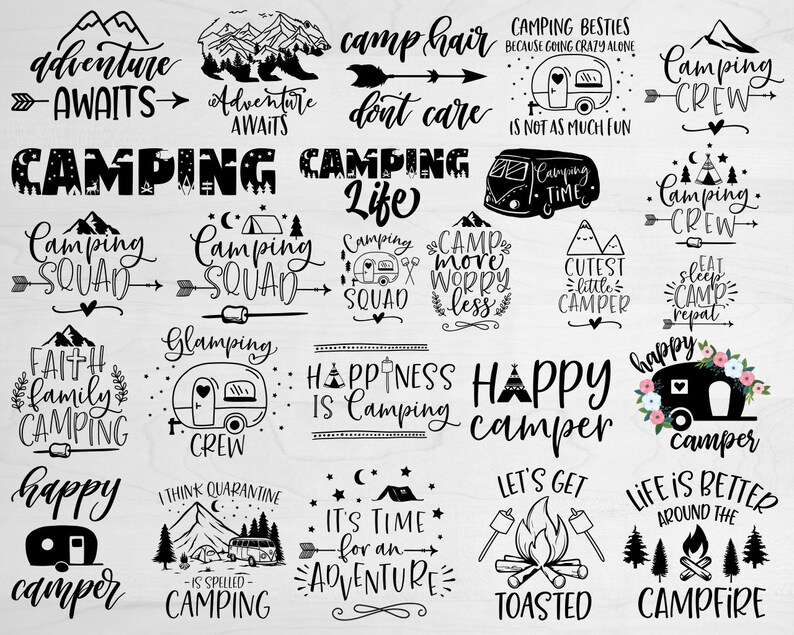 adventure
AWAITS
Adventure
AWAITS
camp hair
dont care
CAMPING BESTIES
BECAUSE GOING CRAZY ALONE
IS NOT AS MUCH FUN
Camping
CREW
CAMPING
CAMPING
Life
Camping
TIME
Camping
CREW
Camping
SQUAD
Camping
SQUAD
Camping
SQUAD
CAMP
more
WORRY
less
CUTEST
little
CAMPER
EAT
sleep
CAMP
repat
FAITH
family
CAMPING
Glamping
CREW
HAPPINESS
IS Camping
HAPPY
camper
happy
camper
happy
camper
I THINK QUARANTINE
- IS SPELLED -
CAMPING
IT'S TIME
for an
ADVENTURE
LET'S GET
TOASTED
LIFE IS BETTER
AROUND THE
CAMPFIRE